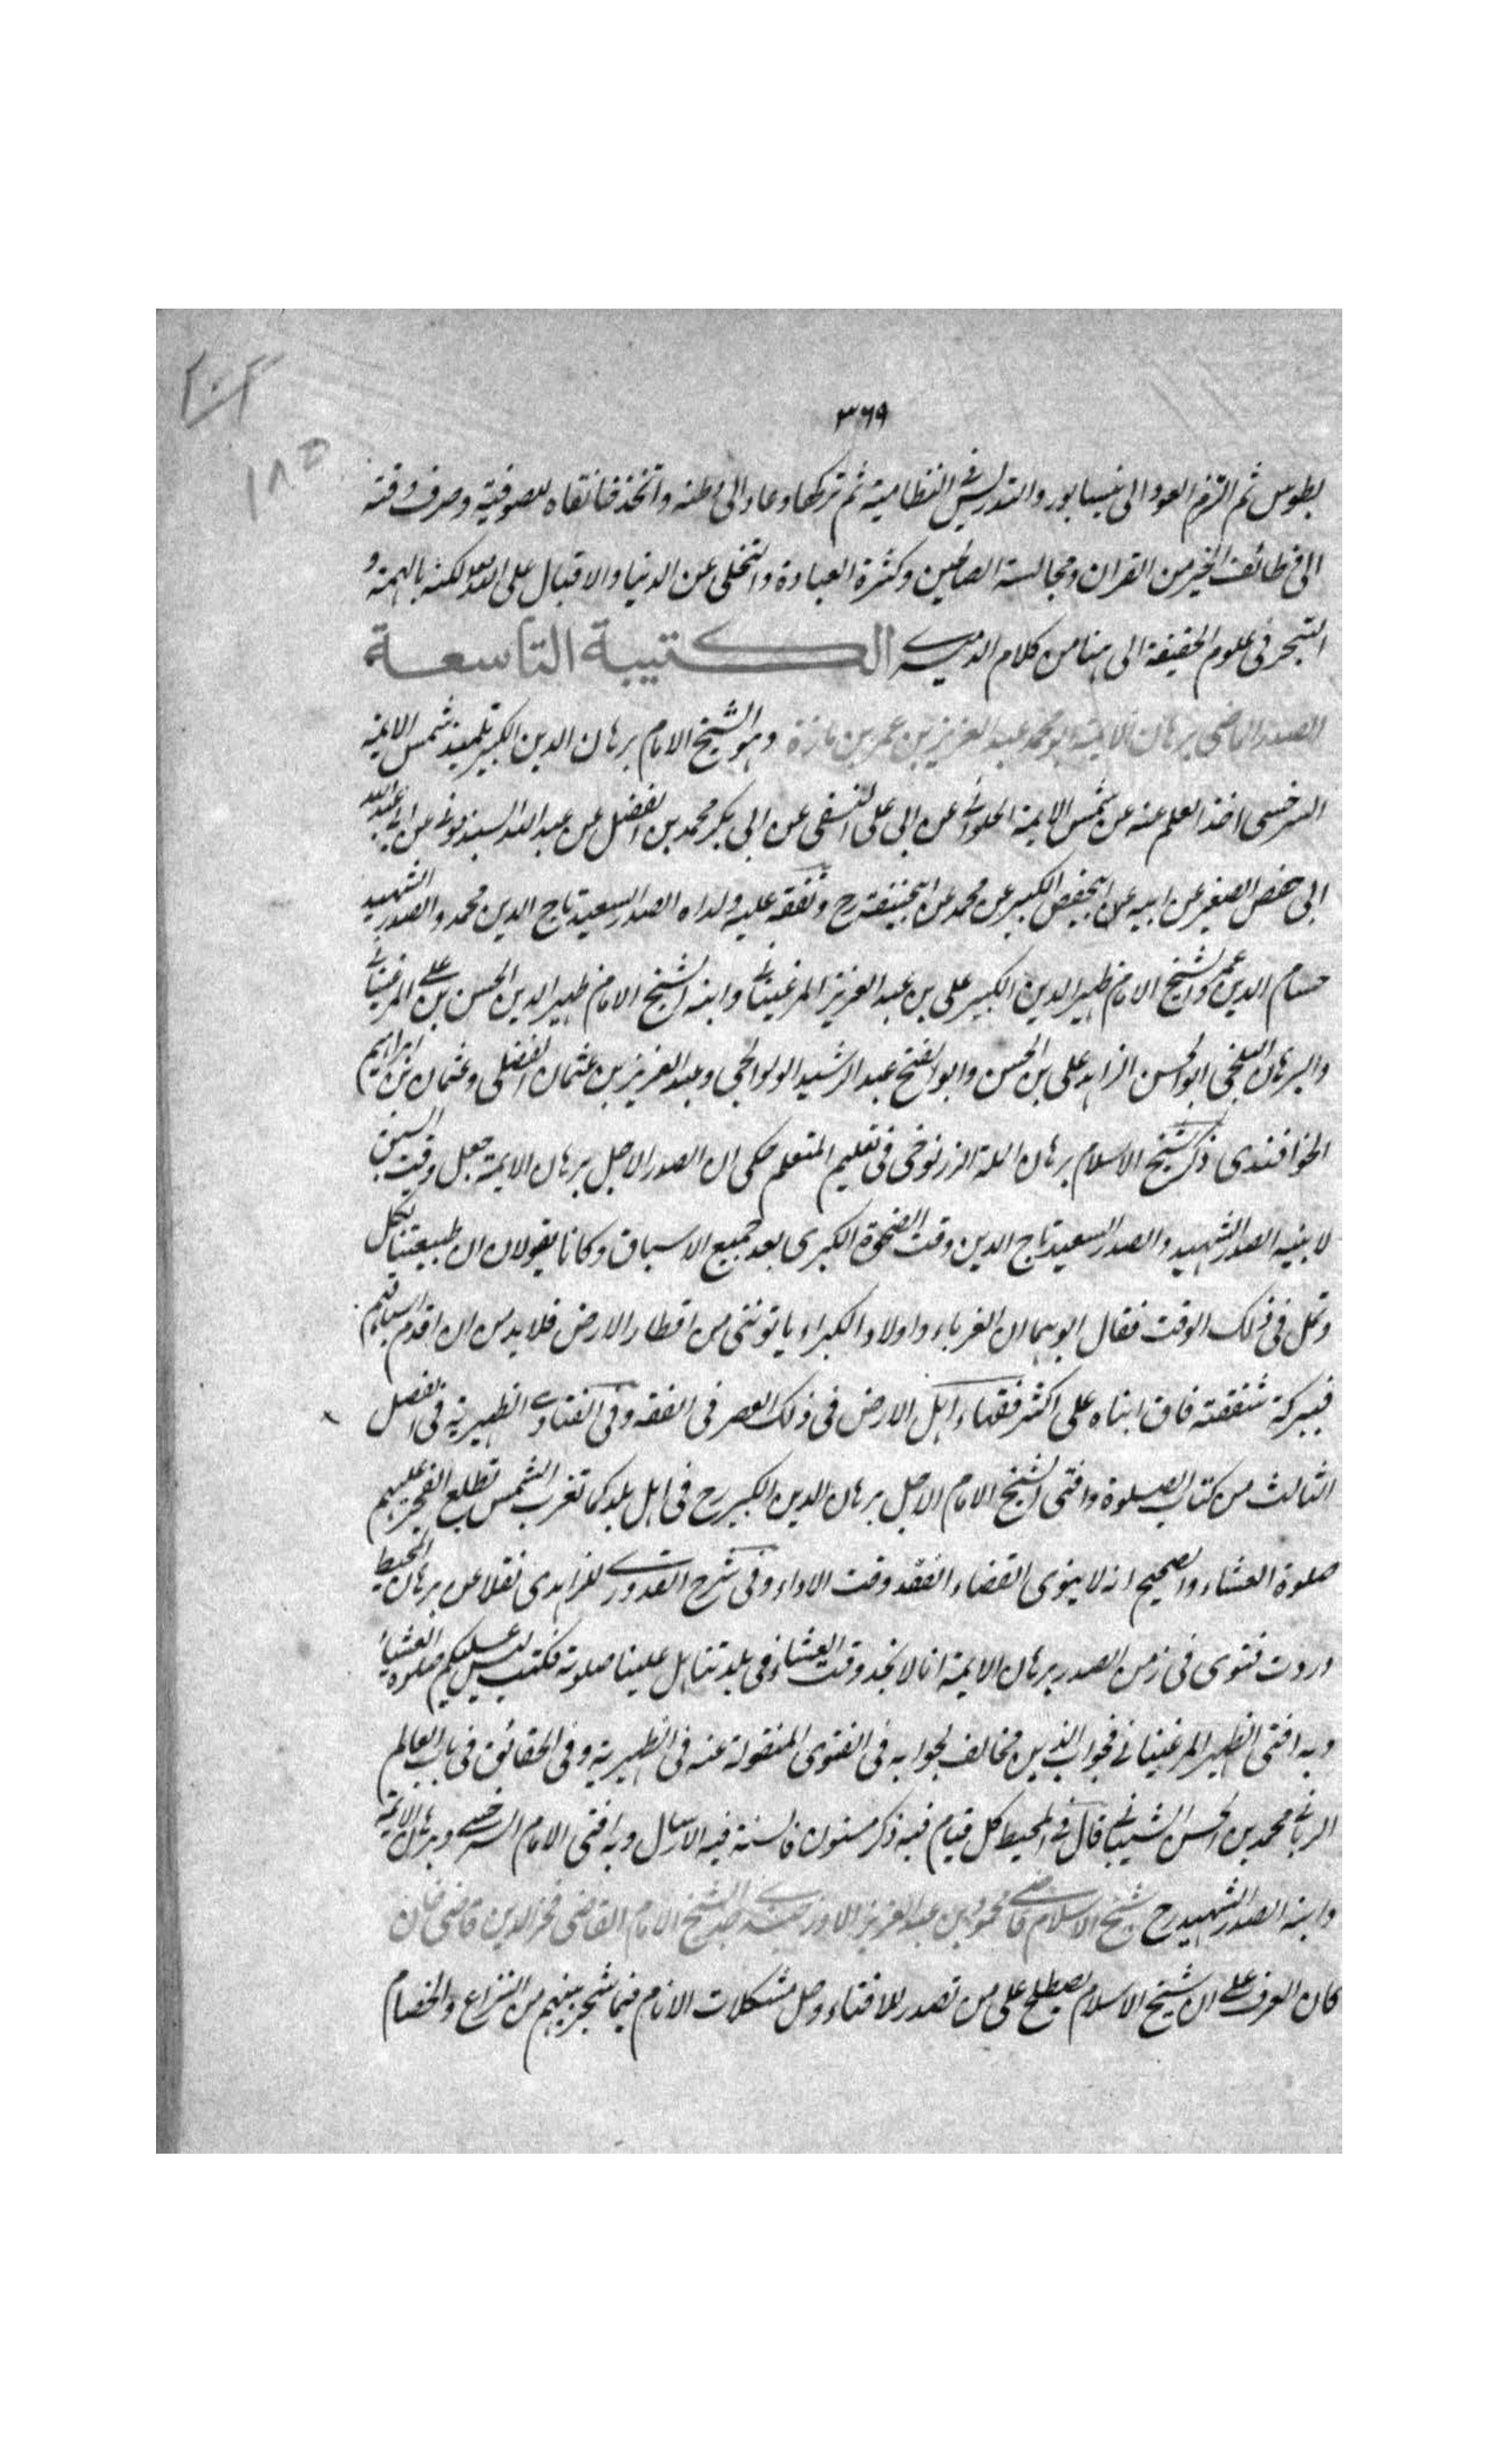 ٣٦٩
١٨٥
بطوس ثم التزم العود الى نيسابور والتدريس فى النظامية ثم تركها وعاد الى وطنه واتخذ خانقاه للصوفية وصرف وقته
الى وظائف الخير من القران ومجالسة الصالحين وكثرة العبادة والتخلى عن الدنيا والاقبال على الله بالهمة و
التبحر فى علوم الحقيقة الى هنا من كلام الدميرى الكتيبة التاسعة
الصدر الماضى برهان الايمة ابو محمد عبد العزيز بن عمر بن مازة وهو الشيخ الامام برهان الدين الكبير تلميذ شمس الايمة
السرخسى اخذ العلم عنه عن شمس الايمة الحلوانى عن ابى على النسفى عن ابى بكر محمد بن الفضل عن عبد الله السبذمونى عن ابى عبد الله
ابى حفص الصغير عن ابيه عن ابيحفص الكبير عن محمد عن ابيحنيفة رح وتفقه عليه ولداه الصدر السعيد تاج الدين محمد والصدر الشهيد
حسام الدين عمر والشيخ الامام ظهير الدين الكبير على بن عبد العزيز المرغينانى وابنه الشيخ الامام ظهير الدين الحسن بن على المرغينانى
والبرهان البلخى ابو الحسن الزاهد على بن الحسن وابو الفتح عبد الرشيد الولوالجى وعبد العزيز بن عثمان الفضلى وعثمان بن ابراهيم
الخواقندى ذكر شيخ الاسلام برهان الملة الزرنوخى فى تعليم المتعلم حكى ان الصدر الاجل برهان الايمة جعل وقت السبق
لابنيه الصدر الشهيد والصدر السعيد تاج الدين وقت الضحوة الكبرى بعد جميع الاسباق وكانا يقولان ان طبيعتنا تكل
وتمل فى ذلك الوقت فقال ابوهما ان الغرباء واولاد الكبراء ياتوننى من اقطار الارض فلا بد من ان اقدم اسباقهم
فببركة شفقته فاق ابناه على اكثر فقهاء اهل الارض فى ذلك العصر فى الفقه وفى الفتاوى الظهيرية فى الفصل
الثالث من كتاب الصلوة وافتى الشيخ الامام الاجل برهان الدين الكبير رح فى اهل بلد كما تغرب الشمس تطلع الفجر عليهم
صلوة العشاء والصحيح انه لا ينوى القضاء لفقد وقت الاداء وفى شرح القدورى للزاهدى نقلا عن برهان المحيط
وردت فتوى فى زمن الصدر برهان الايمة انا لا نجد وقت العشاء فى بلدتنا هل علينا صلوته فكتب ليس عليكم صلوة العشاء
وبه افتى الظهير المرغينانى فجواب الذين مخالف لجوابه فى الفتوى المنقولة عنه فى الظهيرية وفى الحقائق فى باب العالم
الربانى محمد بن الحسن الشيبانى قال فى المحيط كل قيام فيه ذكر مسنون فالسنة فيه الارسال وبه افتى الامام السرخسى وبرهان الايمة
وابنه الصدر الشهيد رح شيخ الاسلام قاضى محمود بن عبد العزيز الاوزجندى جد الشيخ الامام القاضى فخر الدين قاضى خان
كان العرف على ان شيخ الاسلام يصطلح على من تصدر للافتاء وحل مشكلات الانام فيما شجر بينهم من النزاع والخصام